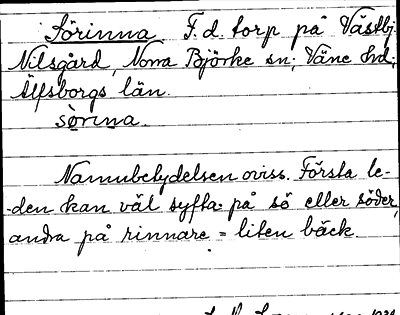 Sörinna F.d. torp på Västbj.
Nilsgård, Norra Björke sn; Väne hd;
Älfsborgs län.
sörina.
Namnbetydelsen oviss. Första le-
-den kan väl syfta på sö eller söder,
andra på rinnare = liten bäck.